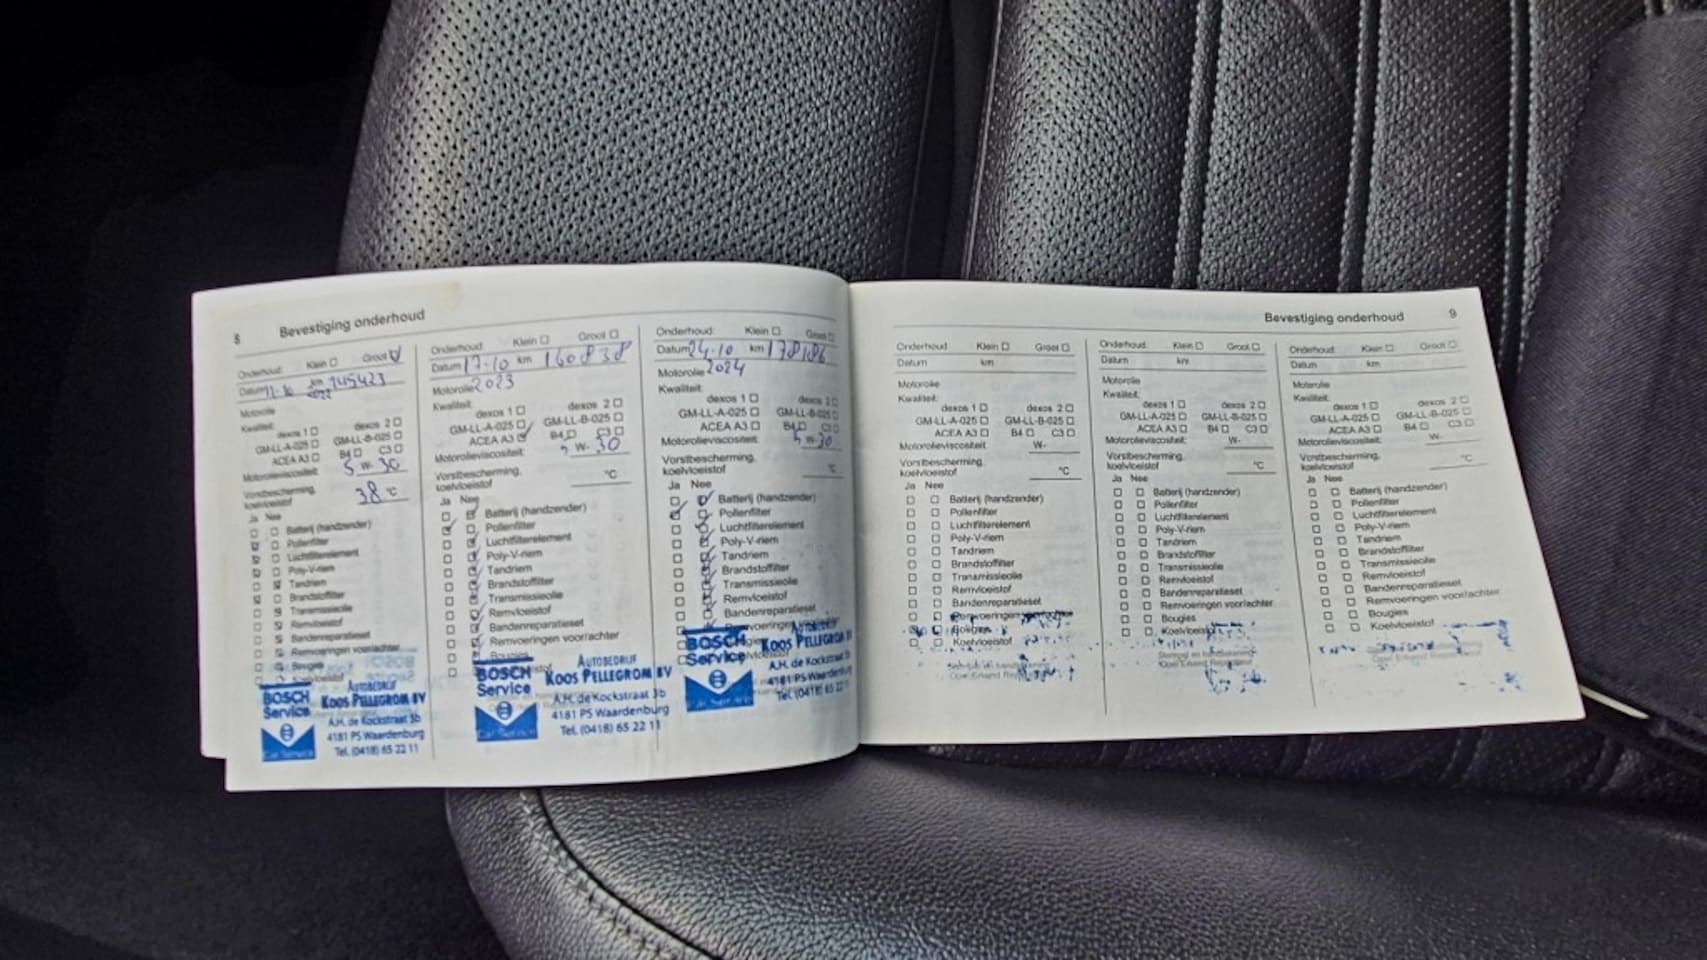 8
Bevestiging onderhoud
Klein Groot
Datum 11-10 2022 km 145423
Motorolie
Kwaliteit:
dexos 1 dexos 2
GM-LL-A-025 GM-LL-B-025
ACEA A3 B4 C3
Motorolieviscositeit: 5 W- 30
Vorstbescherming,
koelvloeistof 38 °C
Ja Nee
Batterij (handzender)
Pollenfilter
Luchtfilterelement
Poly-V-riem
Tandriem
Brandstoffilter
Transmissieolie
Remvloeistof
Bandenreparatieset
Remvoeringen voor/achter
Bougies
BOSCH
Service
AUTOBEDRIJF
KOOS PELLEGROM BV
A.H. de Kockstraat 3b
4181 PS Waardenburg
Tel. (0418) 65 22 11
Car Service
Onderhoud: Klein Groot
Datum 17-10 km 160838
Motorolie 2023
Kwaliteit:
dexos 1 dexos 2
GM-LL-A-025 GM-LL-B-025
ACEA A3 B4 C3
Motorolieviscositeit: 5 W- 30
Vorstbescherming,
koelvloeistof °C
Ja Nee
Batterij (handzender)
Pollenfilter
Luchtfilterelement
Poly-V-riem
Tandriem
Brandstoffilter
Transmissieolie
Remvloeistof
Bandenreparatieset
Remvoeringen voor/achter
Bougies
BOSCH
Service
AUTOBEDRIJF
KOOS PELLEGROM BV
A.H. de Kockstraat 3b
4181 PS Waardenburg
Tel. (0418) 65 22 11
Car Service
Onderhoud: Klein Groot
Datum 24-10 km 178186
Motorolie 2024
Kwaliteit:
dexos 1 dexos 2
GM-LL-A-025 GM-LL-B-025
ACEA A3 B4 C3
Motorolieviscositeit: 5 W- 30
Vorstbescherming,
koelvloeistof °C
Ja Nee
Batterij (handzender)
Pollenfilter
Luchtfilterelement
Poly-V-riem
Tandriem
Brandstoffilter
Transmissieolie
Remvloeistof
Bandenreparatieset
BOSCH
Service
AUTOBEDRIJF
KOOS PELLEGROM
A.H. de Kockstraat
4181 PS Waardenburg
Tel. (0418) 65 22
Bevestiging onderhoud
9
Onderhoud: Klein Groot
Datum km
Motorolie
Kwaliteit:
dexos 1 dexos 2
GM-LL-A-025 GM-LL-B-025
ACEA A3 B4 C3
Motorolieviscositeit: W-
Vorstbescherming,
koelvloeistof °C
Ja Nee
Batterij (handzender)
Pollenfilter
Luchtfilterelement
Poly-V-riem
Tandriem
Brandstoffilter
Transmissieolie
Remvloeistof
Bandenreparatieset
Remvoeringen voor/achter
Bougies
Koelvloeistof
Onderhoud: Klein Groot
Datum km
Motorolie
Kwaliteit:
dexos 1 dexos 2
GM-LL-A-025 GM-LL-B-025
ACEA A3 B4 C3
Motorolieviscositeit: W-
Vorstbescherming,
koelvloeistof °C
Ja Nee
Batterij (handzender)
Pollenfilter
Luchtfilterelement
Poly-V-riem
Tandriem
Brandstoffilter
Transmissieolie
Remvloeistof
Bandenreparatieset
Remvoeringen voor/achter
Bougies
Koelvloeistof
Onderhoud: Klein Groot
Datum km
Motorolie
Kwaliteit:
dexos 1 dexos 2
GM-LL-A-025 GM-LL-B-025
ACEA A3 B4 C3
Motorolieviscositeit: W-
Vorstbescherming,
koelvloeistof °C
Ja Nee
Batterij (handzender)
Pollenfilter
Luchtfilterelement
Poly-V-riem
Tandriem
Brandstoffilter
Transmissieolie
Remvloeistof
Bandenreparatieset
Remvoeringen voor/achter
Bougies
Koelvloeistof